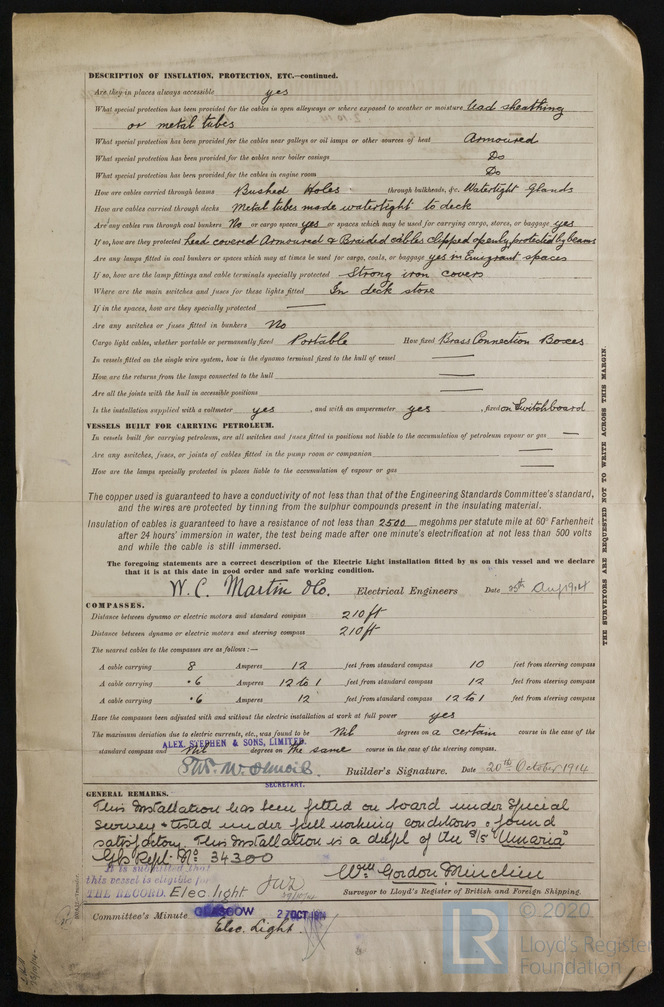 DESCRIPTION OF INSULATION, PROTECTION, ETC.—continued.
Are they in places always accessible yes
What special protection has been provided for the cables in open alleyways or where exposed to weather or moisture lead sheathing
or metal tubes
What special protection has been provided for the cables near galleys or oil lamps or other sources of heat Armoured
What special protection has been provided for the cables near boiler casings Do
What special protection has been provided for the cables in engine room Do
How are cables carried through beams Bushed Holes through bulkheads, &c. Watertight Glands
How are cables carried through decks Metal tubes made watertight to deck
Are any cables run through coal bunkers No or cargo spaces yes or spaces which may be used for carrying cargo, stores, or baggage yes
If so, how are they protected Lead covered Armoured & Braided cables clipped openly, protected by beams
Are any lamps fitted in coal bunkers or spaces which may at times be used for cargo, coals, or baggage yes in Emigrant spaces
If so, how are the lamp fittings and cable terminals specially protected Strong iron covers
Where are the main switches and fuses for these lights fitted In deck store
If in the spaces, how are they specially protected —
Are any switches or fuses fitted in bunkers No
Cargo light cables, whether portable or permanently fixed Portable How fixed Brass Connection Boxes
In vessels fitted on the single wire system, how is the dynamo terminal fixed to the hull of vessel —
How are the returns from the lamps connected to the hull —
Are all the joints with the hull in accessible positions —
Is the installation supplied with a voltmeter yes , and with an amperemeter yes , fixed on Switchboard
VESSELS BUILT FOR CARRYING PETROLEUM.
In vessels built for carrying petroleum, are all switches and fuses fitted in positions not liable to the accumulation of petroleum vapour or gas —
Are any switches, fuses, or joints of cables fitted in the pump room or companion —
How are the lamps specially protected in places liable to the accumulation of vapour or gas —
The copper used is guaranteed to have a conductivity of not less than that of the Engineering Standards Committee's standard,
and the wires are protected by tinning from the sulphur compounds present in the insulating material.
Insulation of cables is guaranteed to have a resistance of not less than 2500 megohms per statute mile at 60° Farhenheit
after 24 hours' immersion in water, the test being made after one minute's electrification at not less than 500 volts
and while the cable is still immersed.
The foregoing statements are a correct description of the Electric Light installation fitted by us on this vessel and we declare
that it is at this date in good order and safe working condition.
W. C. Martin & Co. Electrical Engineers Date 25th Aug 1914
COMPASSES.
Distance between dynamo or electric motors and standard compass 210 ft
Distance between dynamo or electric motors and steering compass 210 ft
The nearest cables to the compasses are as follows:—
A cable carrying 8 Amperes 12 feet from standard compass 10 feet from steering compass
A cable carrying ·6 Amperes 12 to 1 feet from standard compass 12 feet from steering compass
A cable carrying ·6 Amperes 12 feet from standard compass 12 to 1 feet from steering compass
Have the compasses been adjusted with and without the electric installation at work at full power yes
The maximum deviation due to electric currents, etc., was found to be Nil degrees on a certain course in the case of the
ALEX. STEPHEN & SONS, LIMITED.
standard compass and Nil degrees on the same course in the case of the steering compass.
Builder's Signature. Date 20th October 1914
SECRETARY.
GENERAL REMARKS.
This Installation has been fitted on board under Special
Survey & tested under full working conditions & found
satisfactory. This Installation is a dupl of the S/S "Umaria"
Gls Rept. No 34300
It is submitted that
this vessel is eligible for
THE RECORD. Elec. light
Wm Gordon Mincline
Surveyor to Lloyd's Register of British and Foreign Shipping.
Committee's Minute GLASGOW 27 OCT 1914
Elec. Light.
THE SURVEYORS ARE REQUESTED NOT TO WRITE ACROSS THIS MARGIN.
LR © 2020
Lloyd's Register
Foundation